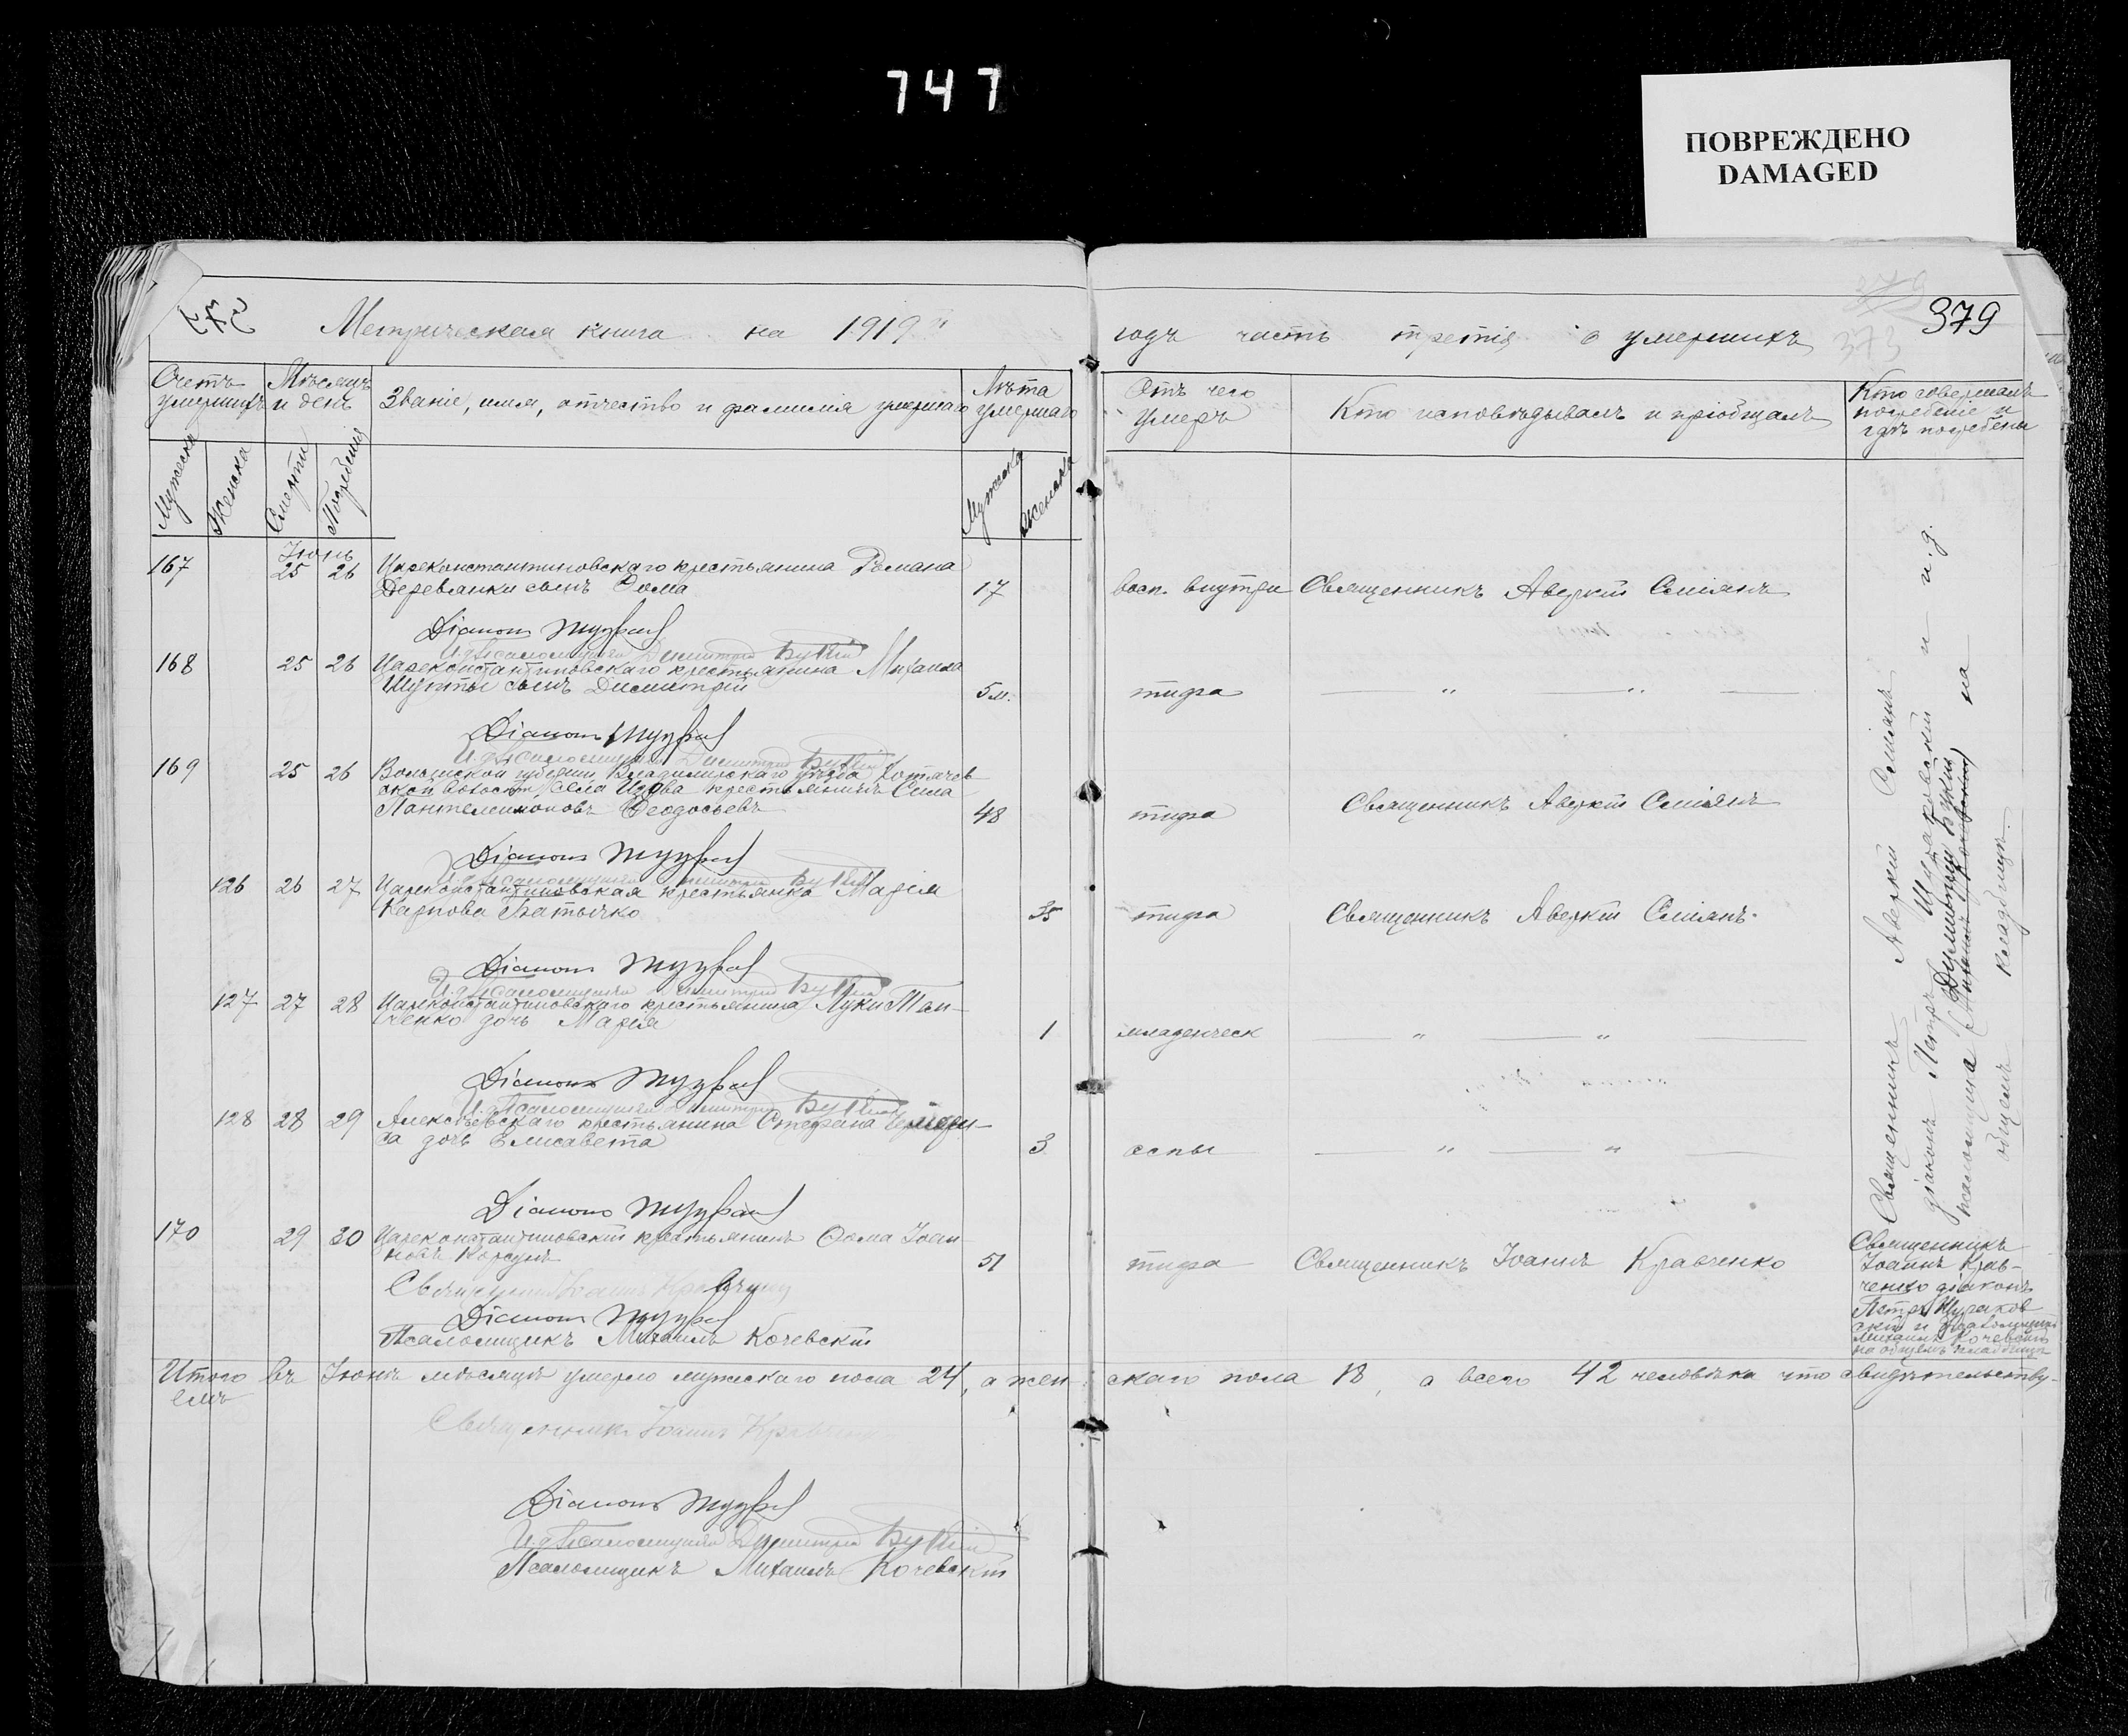 747
ПОВРЕЖДЕНО
DAMAGED
379
373
379
Метрическая книга на 1919 годъ часть третія о умершихъ
Счетъ умершихъ
Мѣсяцъ и день
Званіе, имя, отчество и фамилія умершаго
Лѣта умершаго
Отъ чего умеръ
Кто исповѣдывалъ и пріобщалъ
Кто совершалъ погребеніе и гдѣ погребены
Мужеска
Женска
Смерти
Погребенія
Мужеска
Женска
Іюнь
167 25 26 Цареконстантиновскаго крестьянина Романа
Деревянки сынъ Ѳома 17 восп. внутри Священникъ Аверкій Семіянъ
Діаконъ
И. д. Псаломщика Димитрій
168 25 26 Цареконстантиновскаго крестьянина Михаила
Шутты сынъ Димитрій 5 м. тифа — " — " —
Діаконъ
И. д. Псаломщика Димитрій
169 25 26 Волынской губерніи, Владимірскаго уѣзда
ской волости, села крестьянинъ Сила
Пантелеимоновъ Ѳеодосьевъ 48 тифа Священникъ Аверкій Семіянъ
Діаконъ
И. д. Псаломщика Димитрій
126 26 27 Цареконстантиновская крестьянка Марія
Карпова Батычко 35 тифа Священникъ Аверкій Семіянъ.
Діаконъ
И. д. Псаломщика Димитрій
127 27 28 Цареконстантиновскаго крестьянина Луки Тан-
ченко дочь Марія 1 младенческ — " — " —
Діаконъ
И. д. Псаломщика Димитрій
128 28 29 Алексѣевскаго крестьянина Стефана
са дочь Елисавета 3 оспы — " — " —
Діаконъ
170 29 30 Цареконстантиновскій крестьянинъ Ѳома Іоан-
новъ Корсунъ 51 тифа Священникъ Іоаннъ Кравченко
Священникъ Іоаннъ Кравченко
Діаконъ
Псаломщикъ Михаилъ Кочевскій
Священникъ Аверкій Семіянъ
діаконъ Петръ и и. д.
псаломщика Димитрій на
общемъ кладбищѣ.
Священникъ
Іоаннъ Крав-
ченко діаконъ
Петръ
скій и Псаломщикъ
Михаилъ Кочевскій
на общемъ кладбищѣ
Итого въ Іюнѣ мѣсяцѣ умерло мужскаго пола 24, а жен- скаго пола 18, а всего 42 человѣка что свидѣтельству-
емъ
Священникъ Іоаннъ Кравченко
Діаконъ
И. д. Псаломщика Димитрій
Псаломщикъ Михаилъ Кочевскій